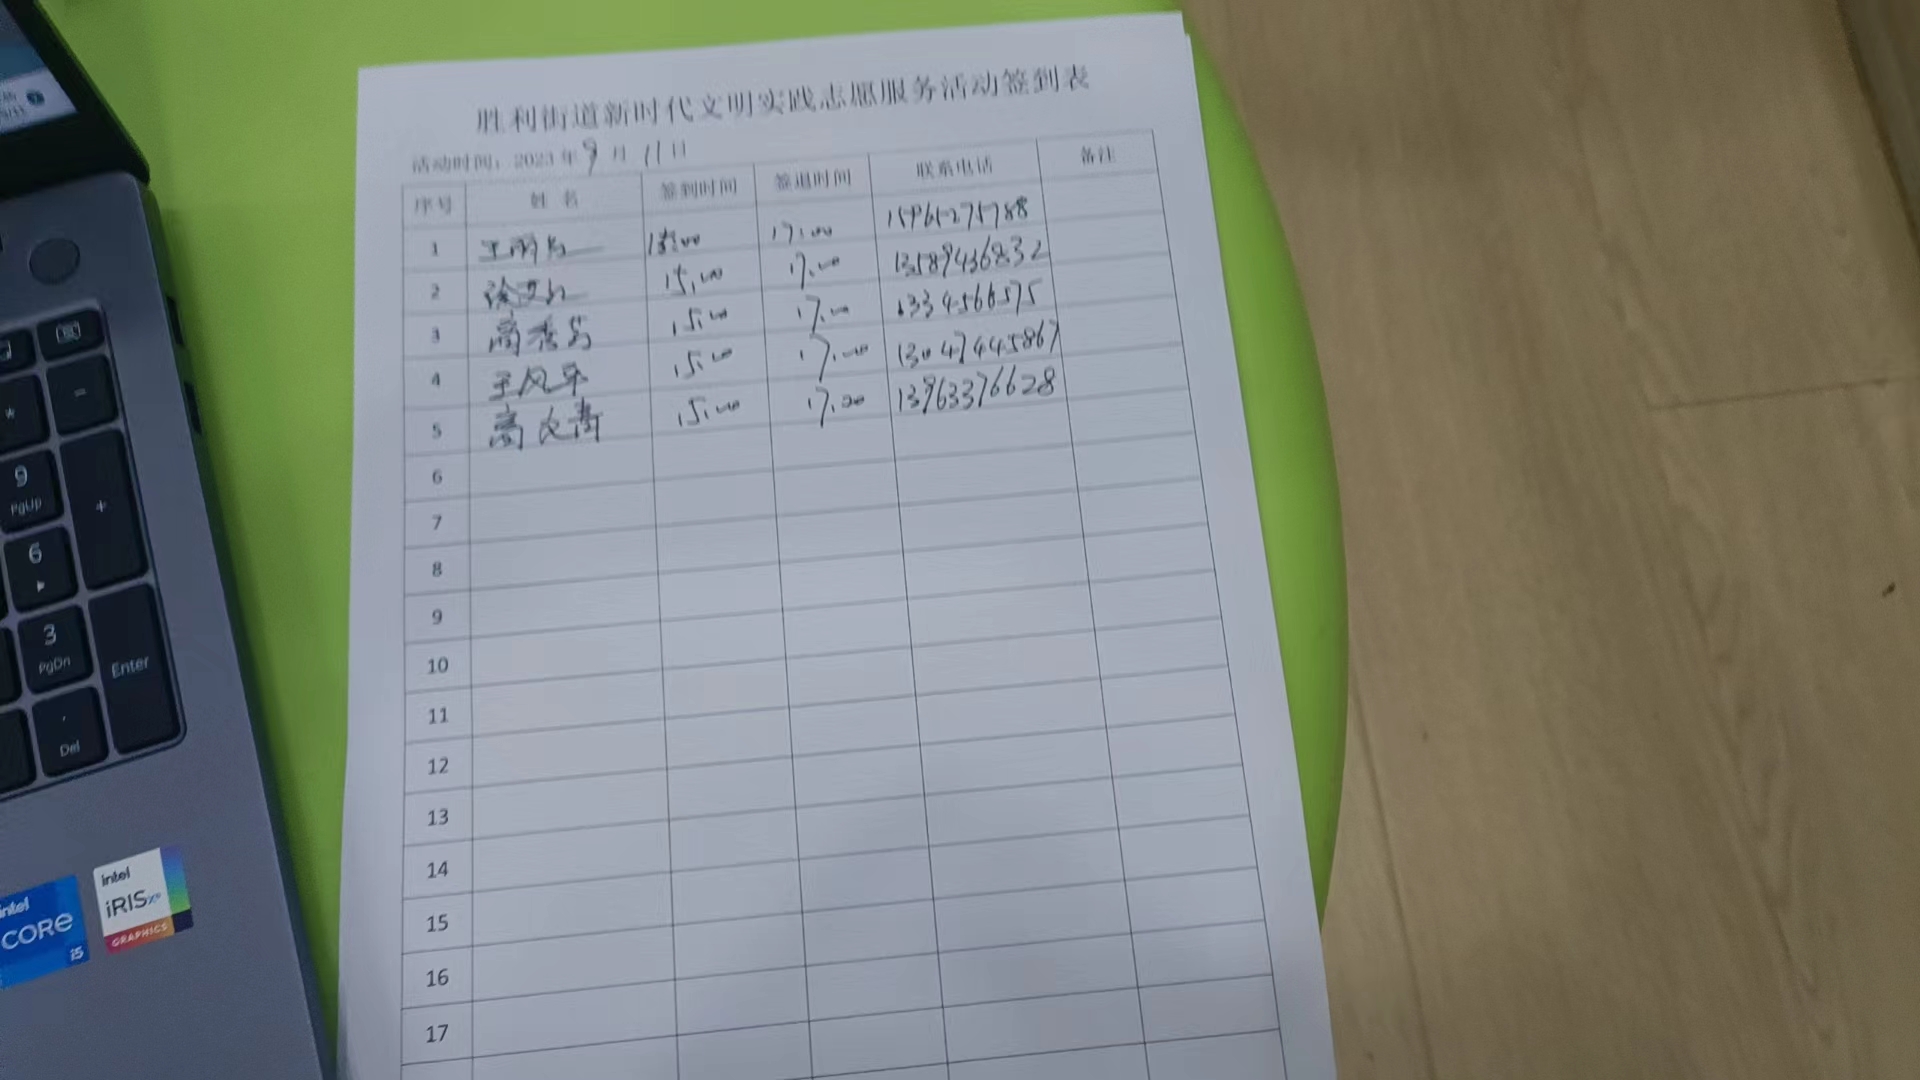 胜利街道新时代文明实践志愿服务活动签到表
活动时间：2023年9月11日
序号 姓名 签到时间 签退时间 联系电话 备注
1 15:00 17:00 15965275788
2 15:00 17:00 13589436832
3 高秀芳 15:00 17:00 1334566575
4 王风平 15:00 17:00 13047445867
5 高文青 15:00 17:00 13963376628
6
7
8
9
10
11
12
13
14
15
16
17
*
-
9
PgUp
+
6
3
PgDn
Enter
.
Del
intel
CORE
i5
intel
iRISxe
GRAPHICS